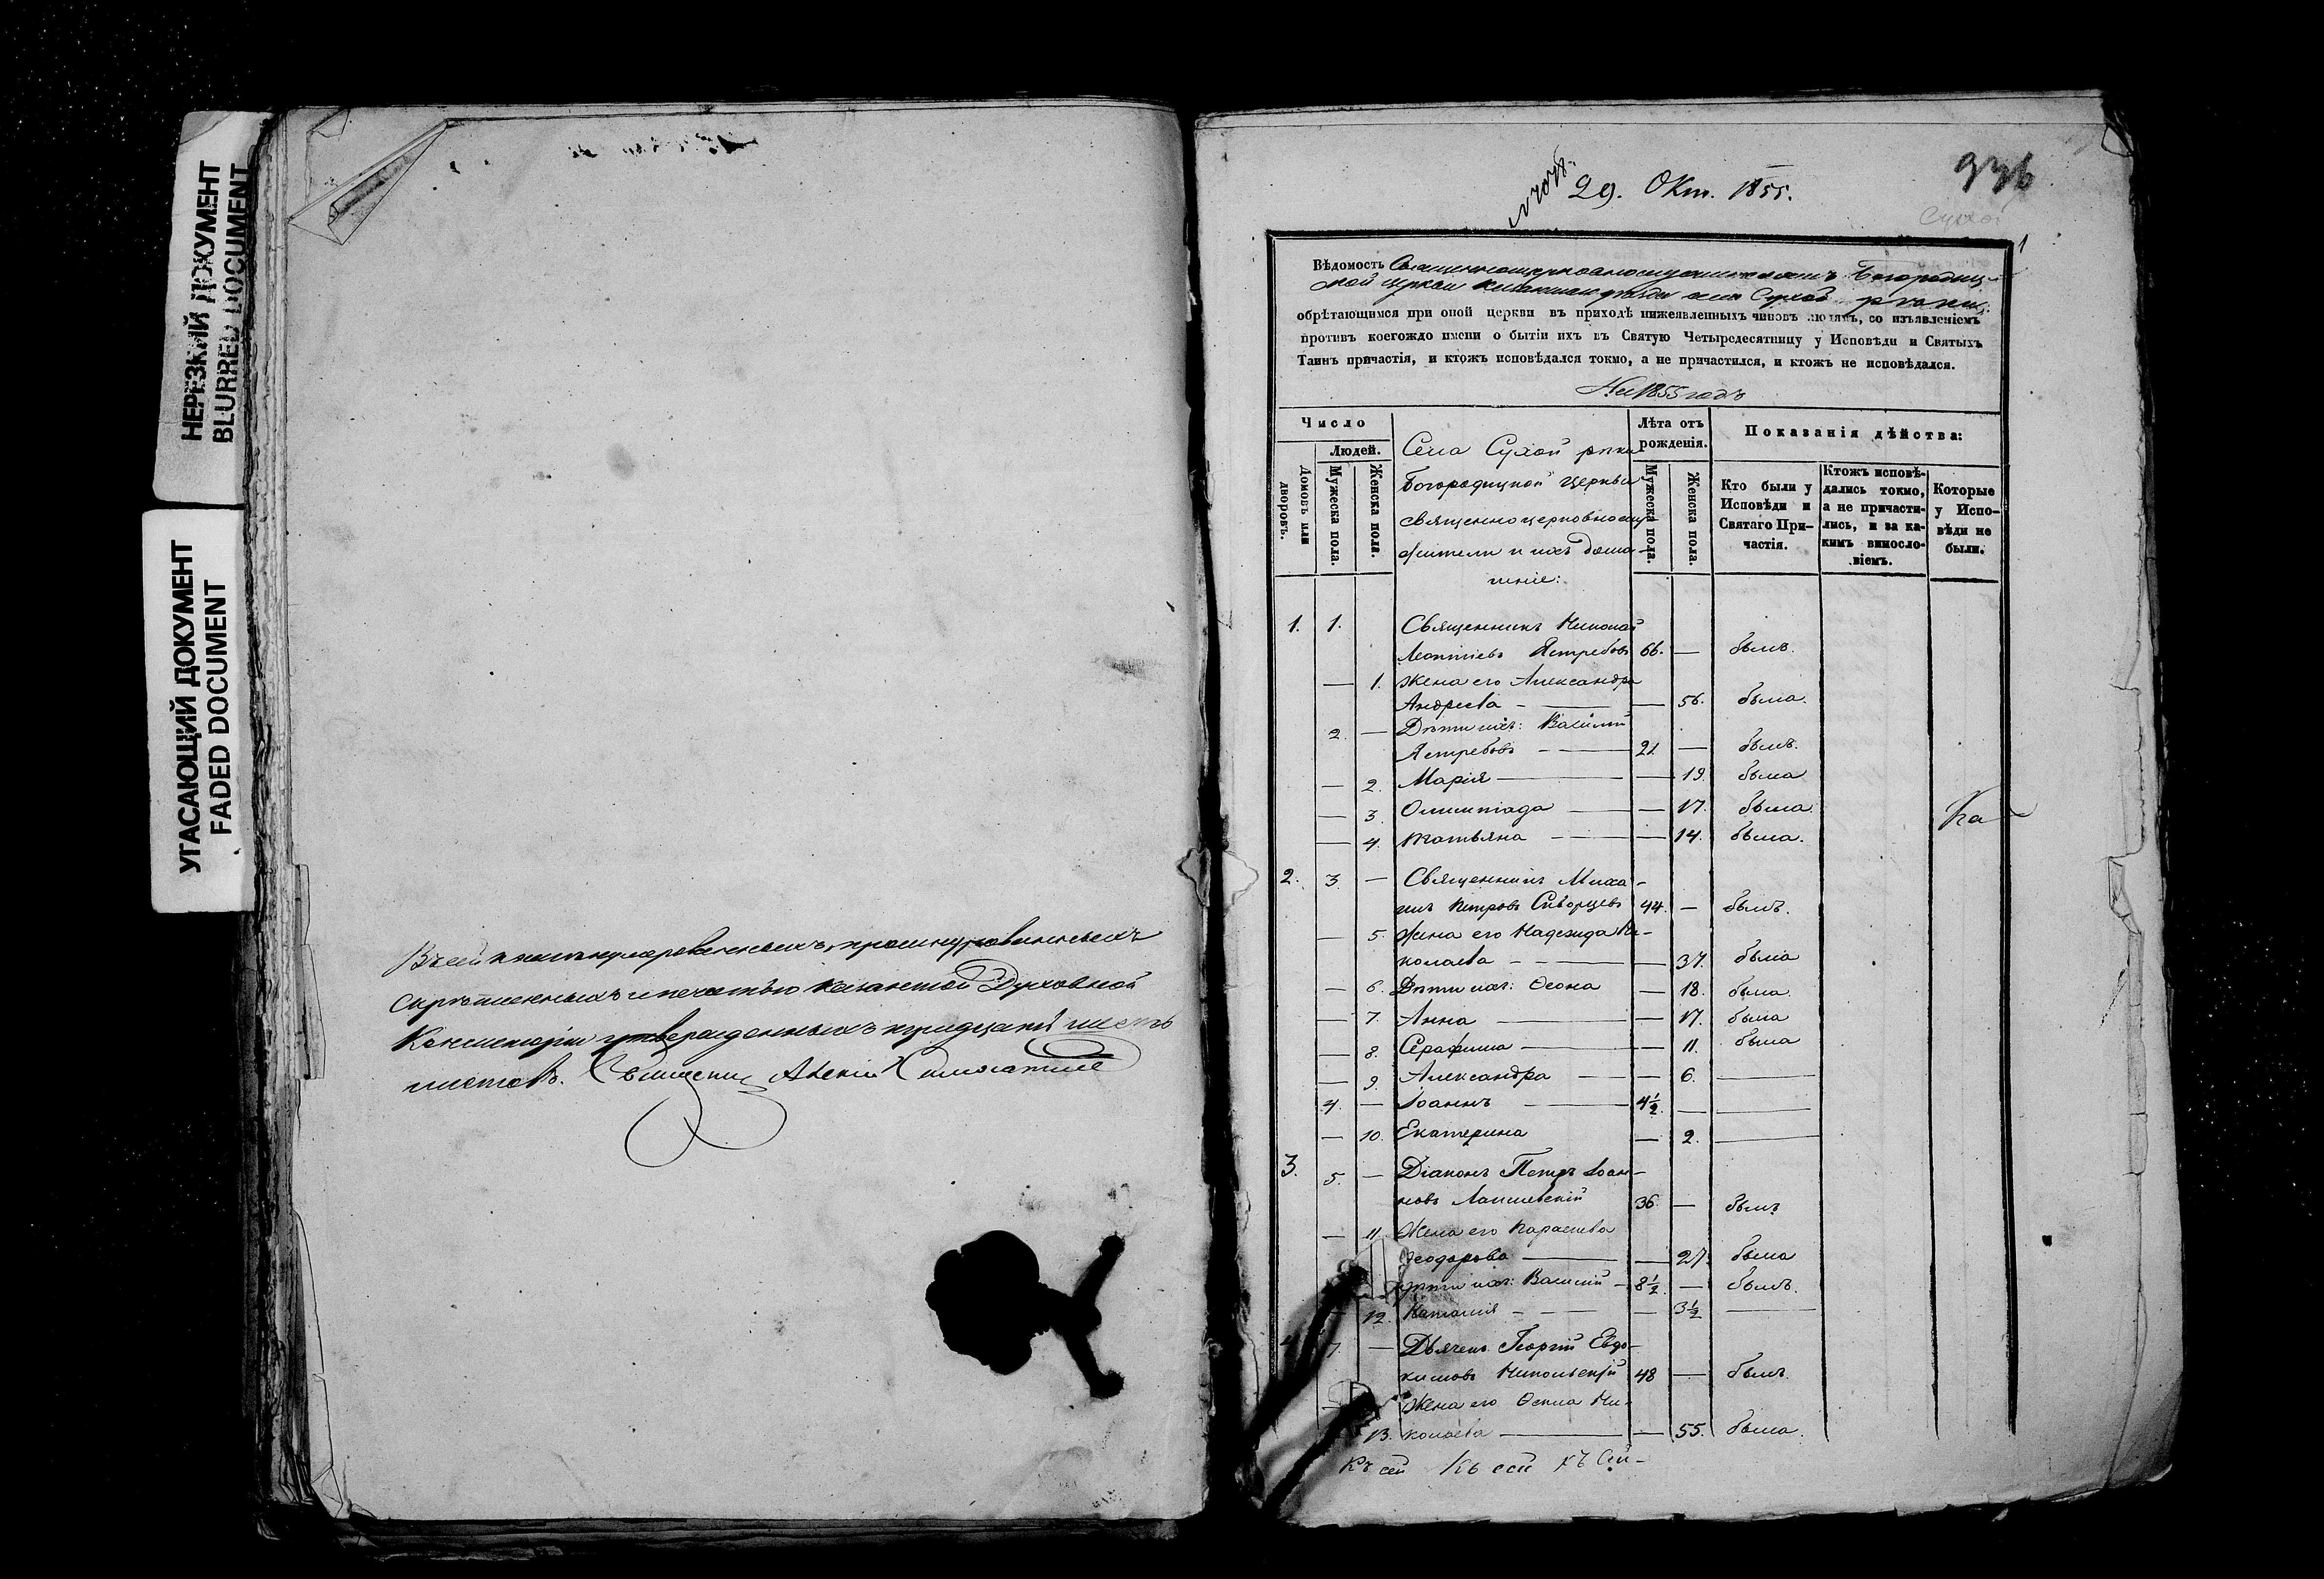 НЕРЕЗКИЙ ДОКУМЕНТ
BLURRED DOCUMENT
УГАСАЮЩИЙ ДОКУМЕНТ
FADED DOCUMENT
Въ сей книгѣ нумерованныхъ, прошнурованныхъ
скрѣпленныхъ и печатью Казанской Духовной
Консисторіи утвержденныхъ тридцать шесть
листовъ.
29. Окт. 1855.
936
Сухой
1
Вѣдомость Священноцерковнослужителямъ Богородиц-
кой церкви уѣзда села Сухой рѣки
обрѣтающимся при оной церкви въ приходѣ нижеявленныхъ чиновъ людямъ, со изъявленіемъ
противъ коегождо имени о бытіи ихъ въ Святую Четыредесятницу у Исповѣди и Святыхъ
Таинъ причастія, и ктожъ исповѣдался токмо, а не причастился, и ктожъ не исповѣдался.
На 1855 годъ
Число
Людей.
Домовъ или дворовъ.
Мужеска пола.
Женска пола.
Села Сухой рѣки
Богородицкой церкви
священноцерковнослу-
жители и ихъ дома-
шніе:
Лѣта отъ рожденія.
Мужеска пола.
Женска пола.
Показанія дѣйства:
Кто были у Исповѣди и Святаго При-частія.
Ктожъ исповѣ-дались токмо, а не причасти-лись, и за ка-кимъ винословіемъ.
Которые у Испо-вѣди не были.
1. 1. Священникъ Николай
Леонтіевъ Ястребовъ 66. — былъ.
— 1. Жена его Александра
Андреева — — 56. была.
2. — Дѣти ихъ: Василій
Ястребовъ — 21. — былъ.
— 2. Марія — — 19. была
— 3. Олимпіада — — 17. была.
— 4. Татьяна — — 14. была.
Ка
2. 3. — Священникъ Миха-
илъ Петровъ Скворцевъ 44. — былъ.
— 5. Жена его Надежда Ни-
колаева — — 37. была
— 6. Дѣти ихъ: — 18. была.
— 7. Анна — — 17. была
— 8. Серафима — — 11. была
— 9. Александра — — 6. —
4. — Іоаннъ — 4½. — —
— 10. Екатерина — 2. —
3. 5. — Діаконъ Петръ Іоан-
новъ Лаишевскій 36. — былъ
— 11. Жена его Параскева
Ѳеодорова — — 27. была
Дѣти ихъ: Василій — 8½. — былъ.
— 12. Наталія — — 3½ —
4. 7. — Дьячекъ Георгій Евдо-
кимовъ Никольскій 48 — былъ.
Жена его Ни-
13. колаева — — 55. была.
Къ сей Къ сей Къ Сей-